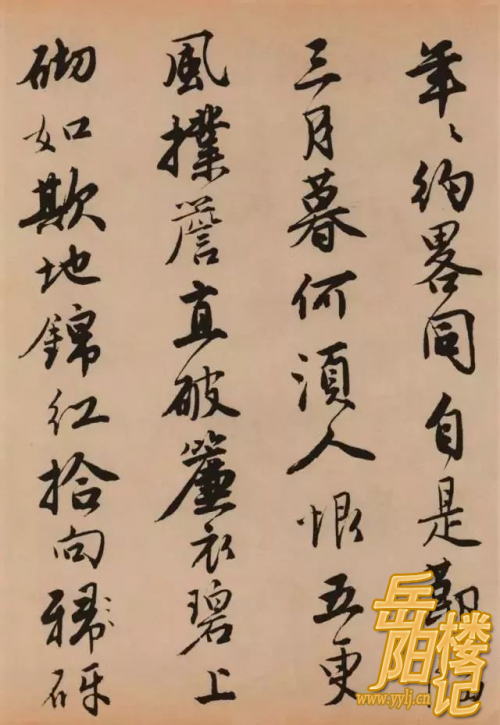 年〻約畧同自是節
三月暮何須人恨五更
風撲簷直破簾衣碧上
砌如欺地錦紅拾向砑
岳阳楼记
www.yylj.cn